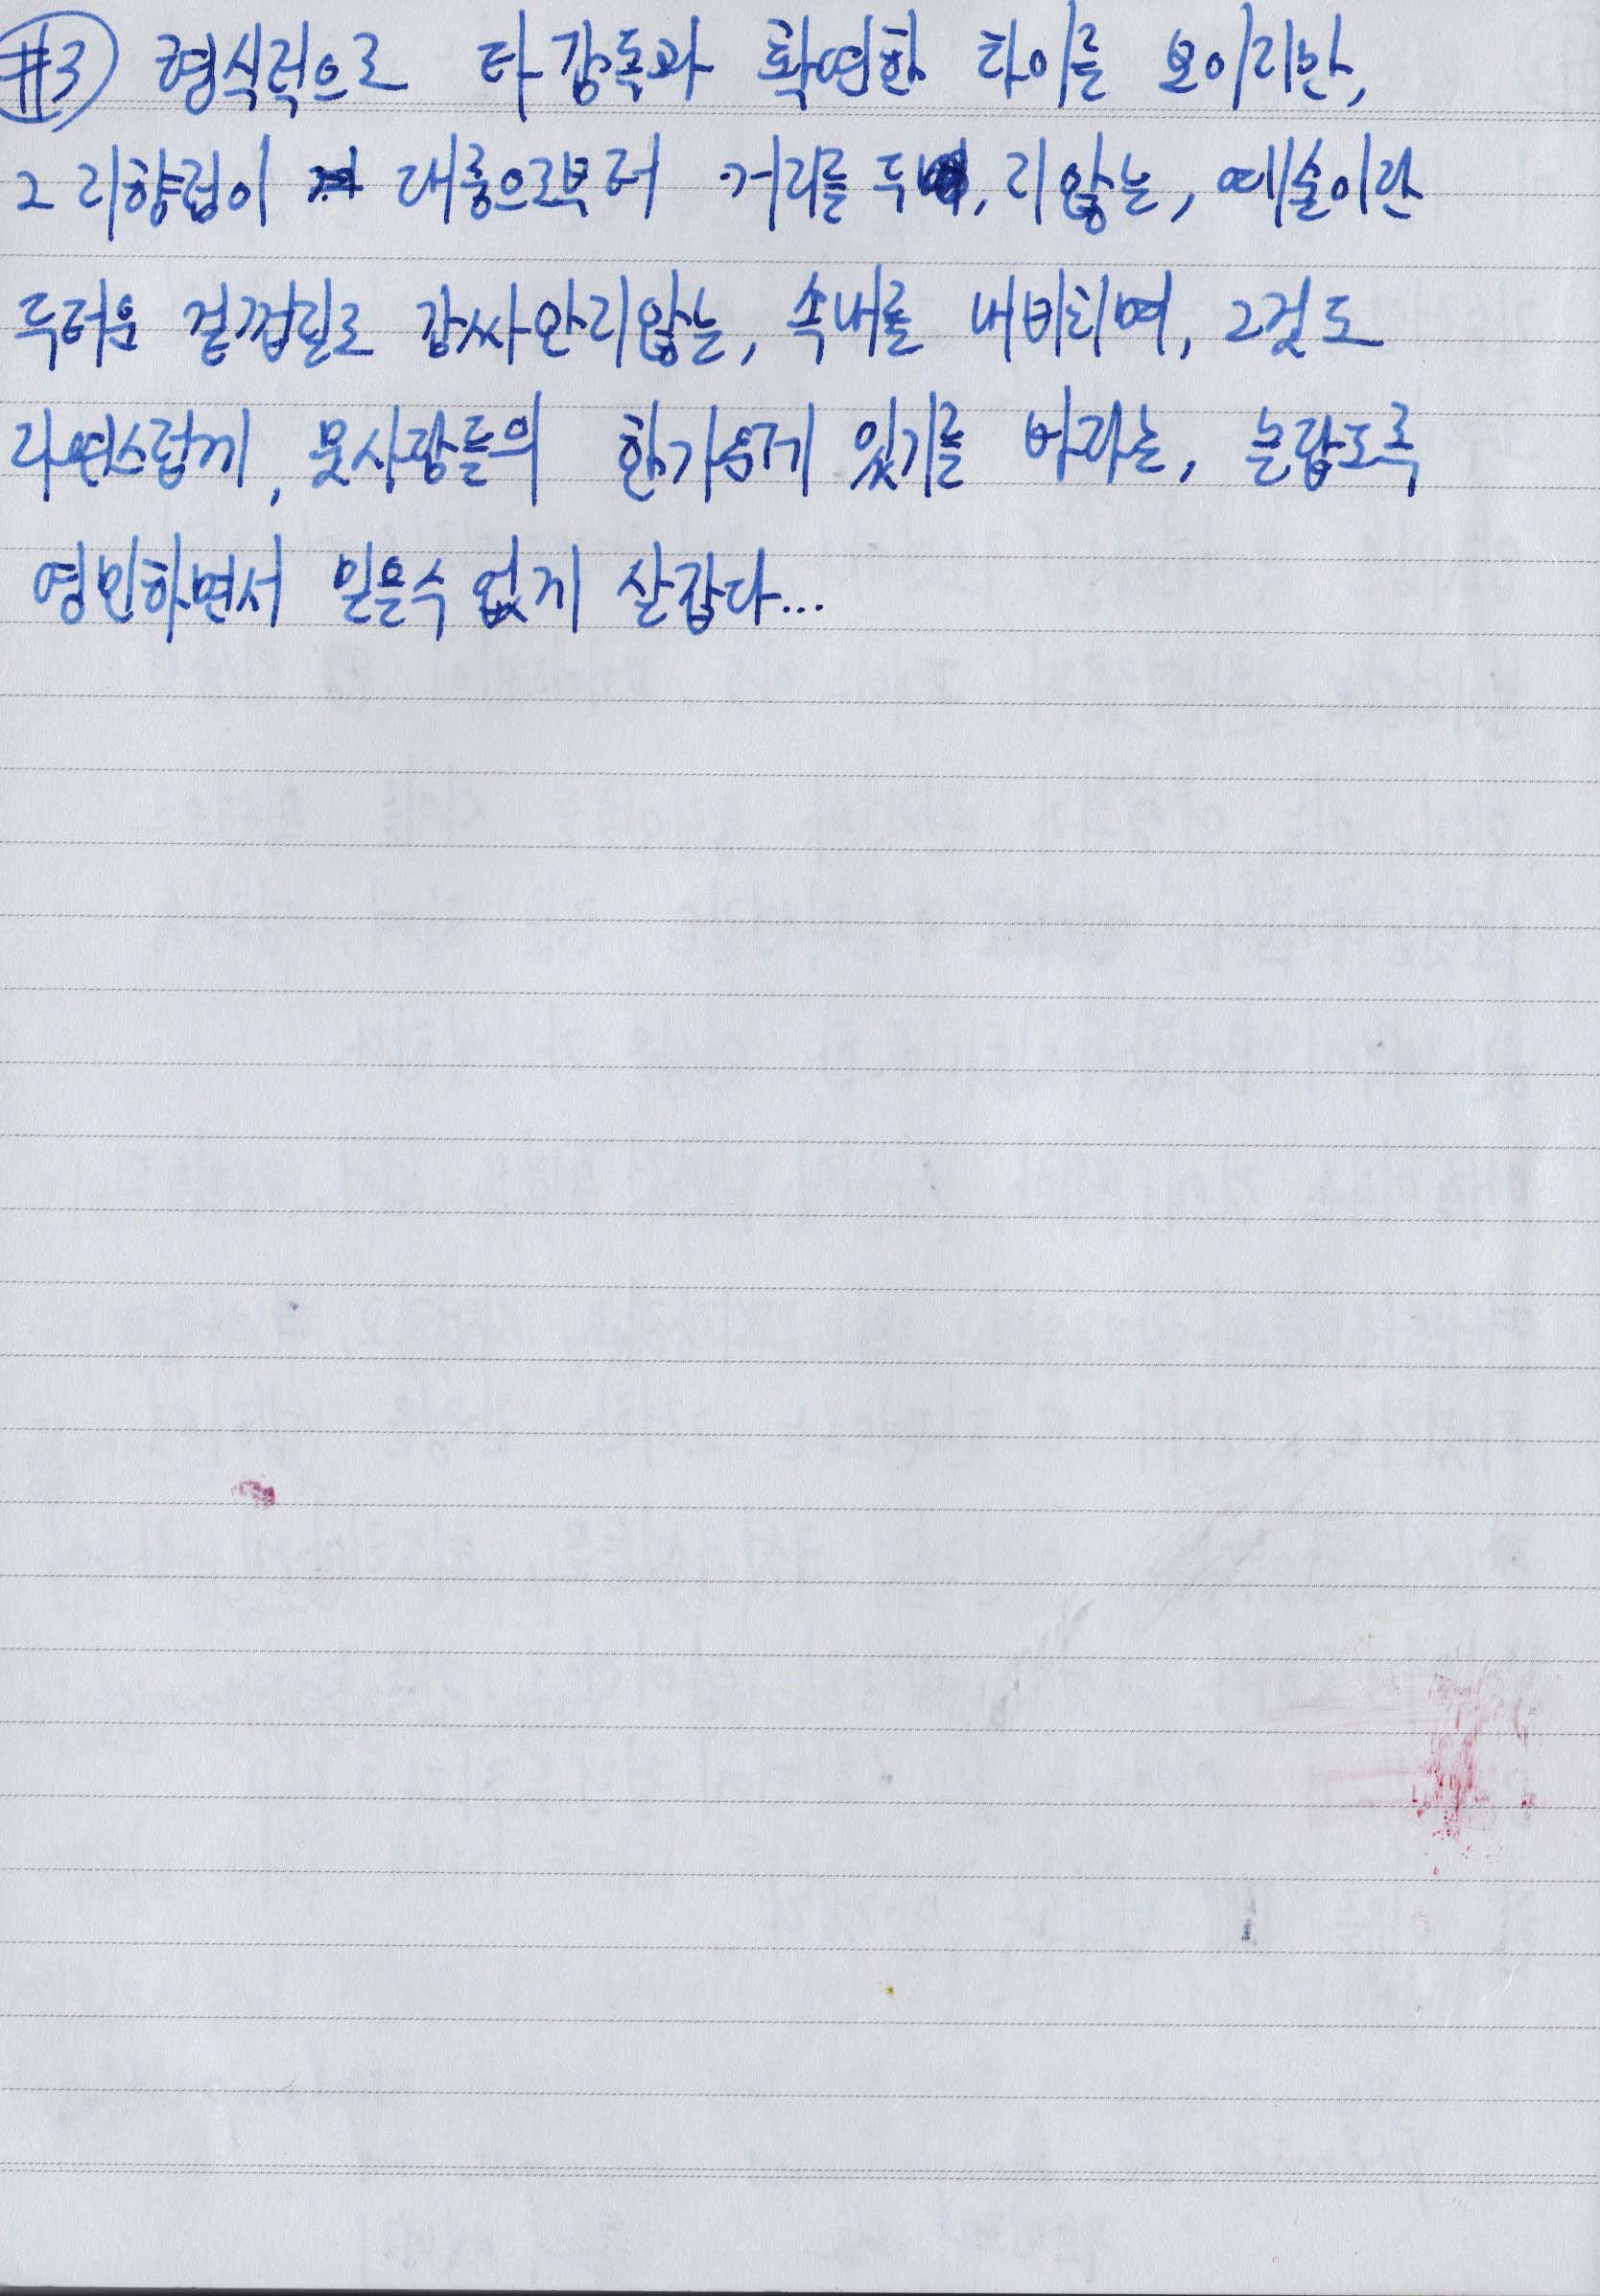 #3 형식적으로 타 감독과 확연한 차이를 보이지만,
그 지향점이 대중으로부터 거리를 두지않는, 예술이란
두터운 겉껍질로 감싸안지않는, 속내를 내비치며, 그것도
자연스럽게, 뭇사람들의 한가운데 있기를 바라는, 놀랍도록
영민하면서 믿을수 없게 살갑다...